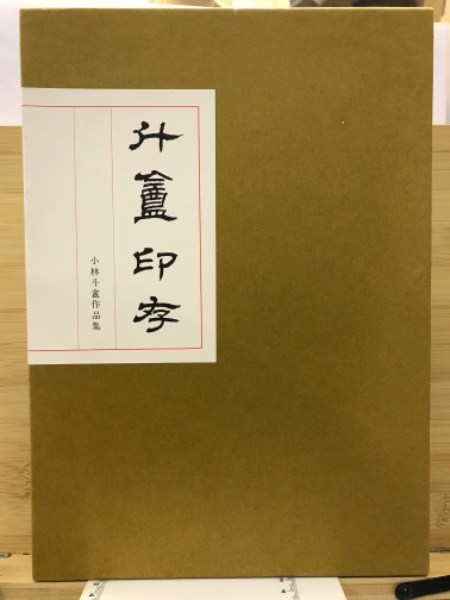 斗盦印存
小林斗盦作品集